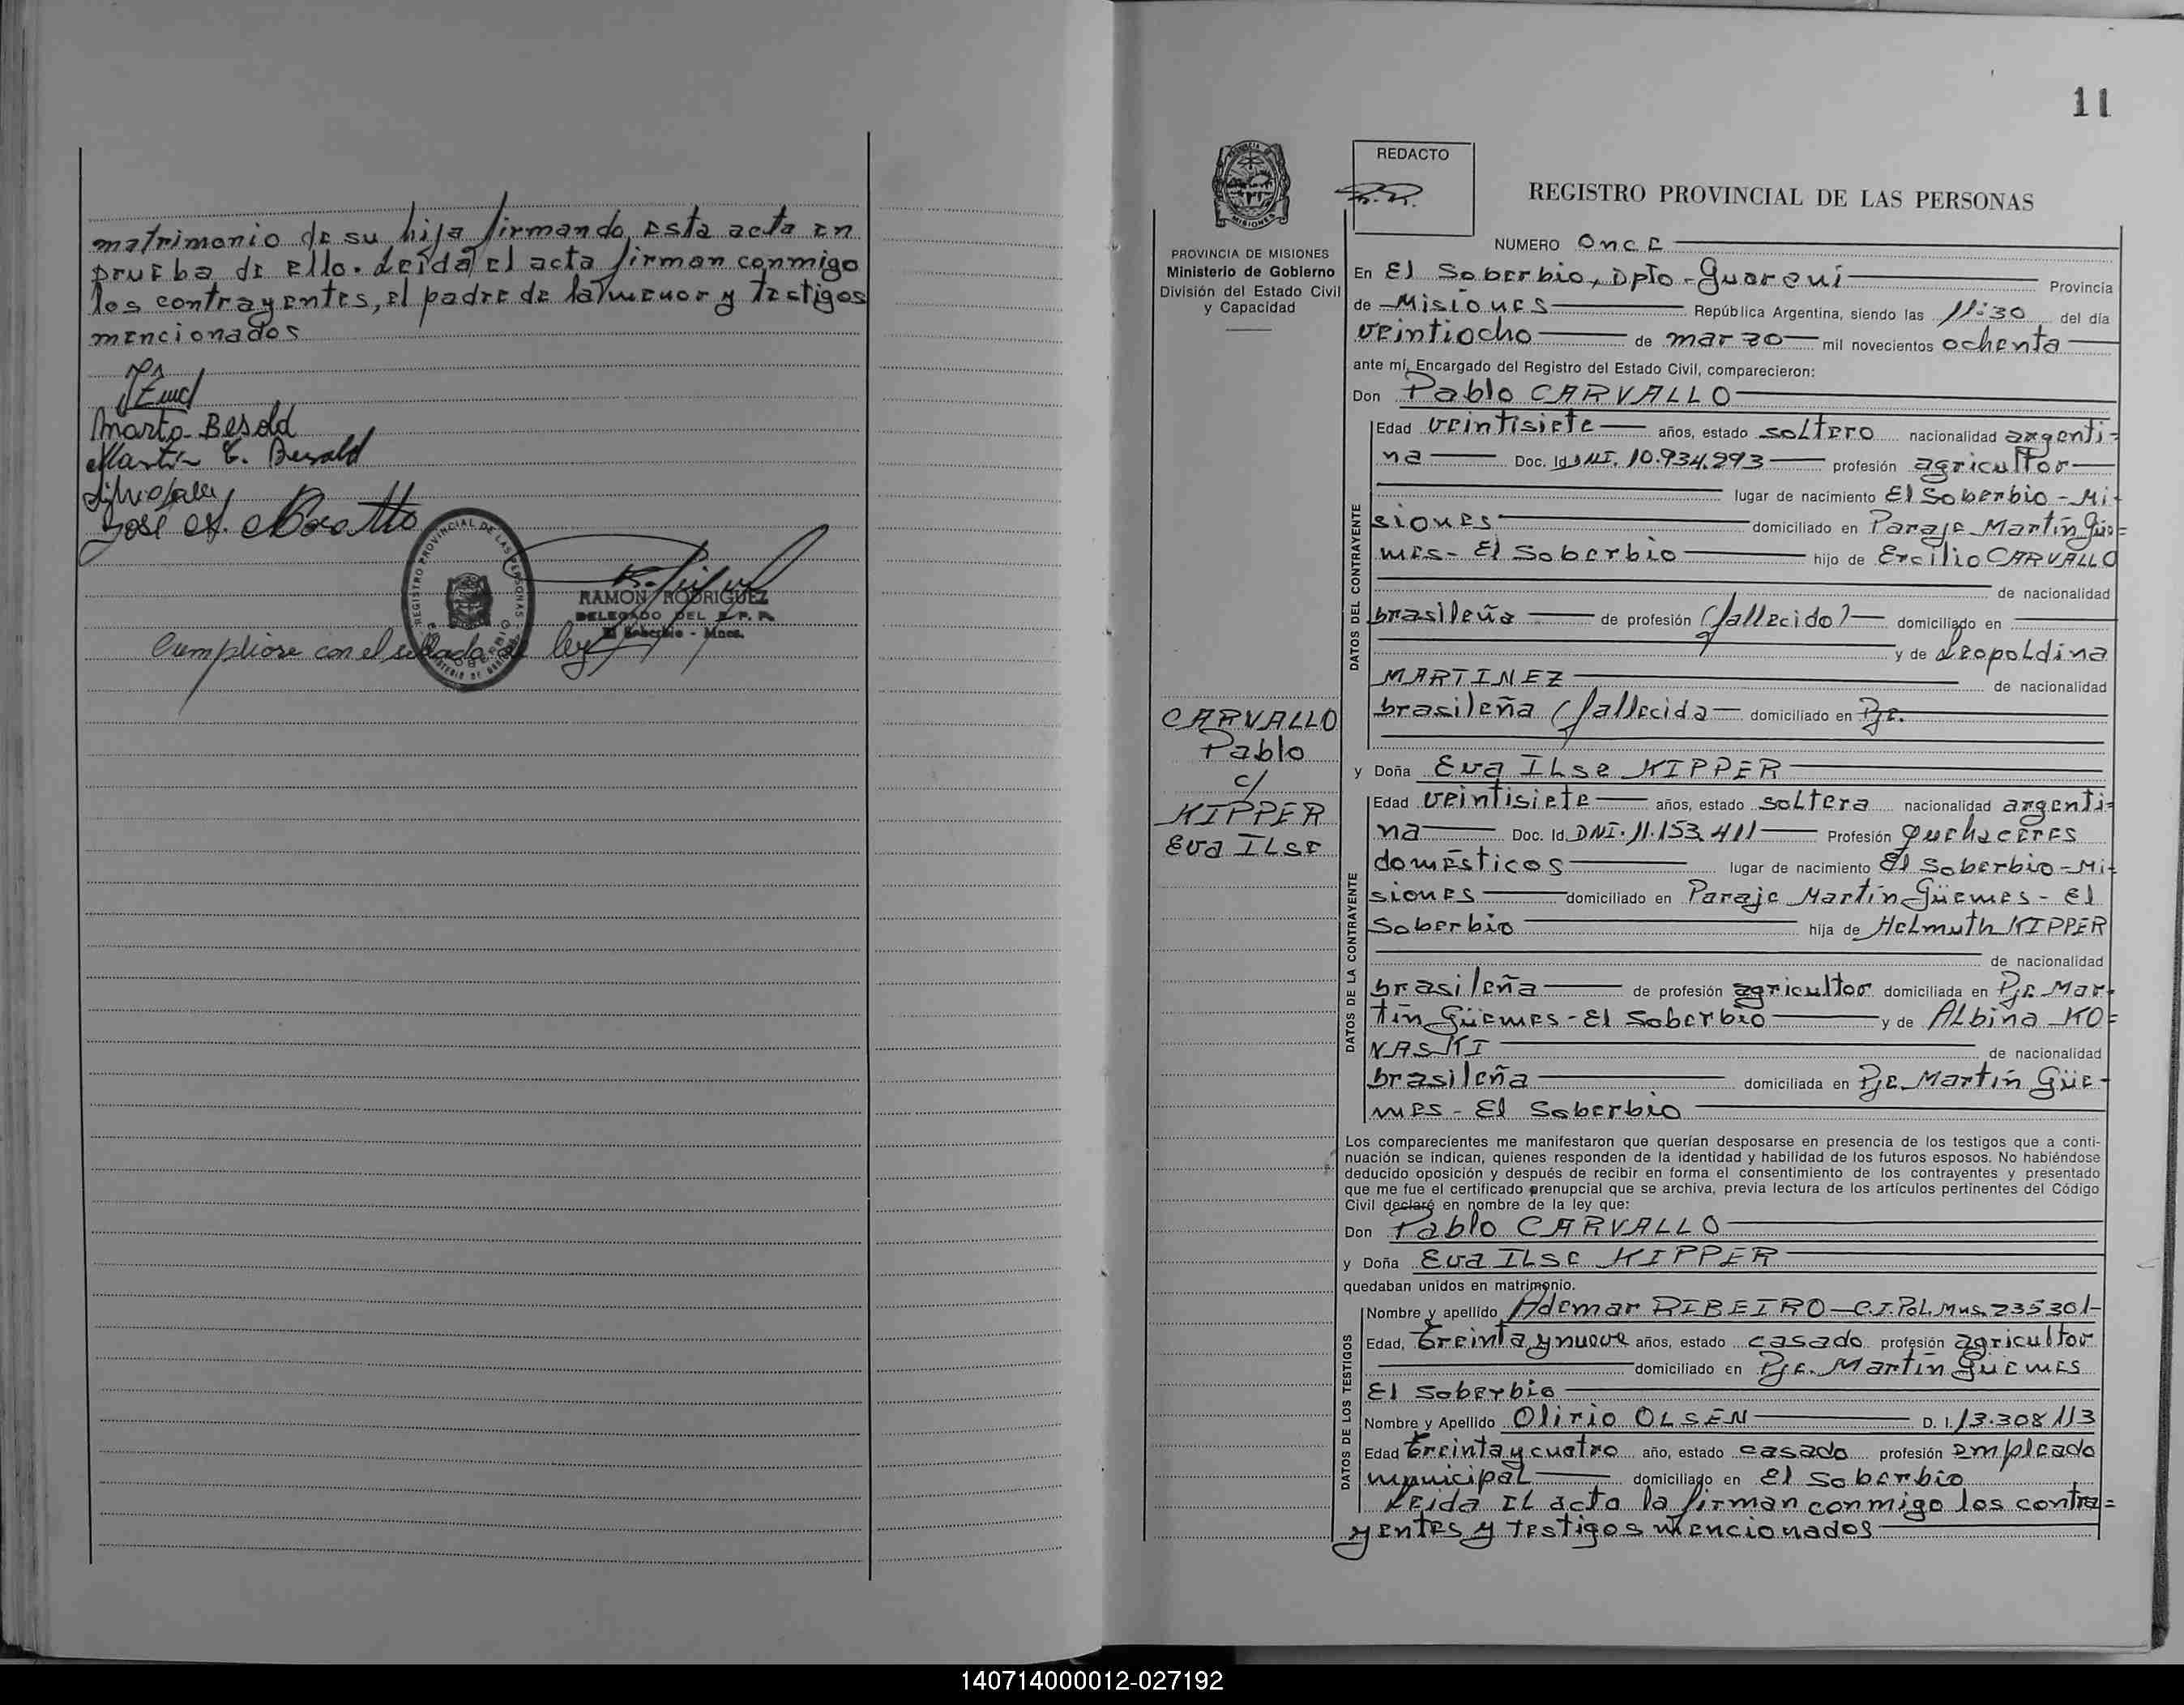 matrimonio de su hija firmando esta acta en
prueba de ello. Leída el acta firman conmigo
los contrayentes, el padre de la menor y testigos
mencionados
Marta Besold
Martín C. Besold
José A.
REGISTRO PROVINCIAL DE LAS PERSONAS
RAMON RODRIGUEZ
DELEGADO DEL R. P. P.
El Soberbio - Mnes.
Cumpliose con el sellado de ley
11
REDACTO
R.R.
REGISTRO PROVINCIAL DE LAS PERSONAS
PROVINCIA DE MISIONES
Ministerio de Gobierno
División del Estado Civil
y Capacidad
NUMERO Once
En El Soberbio, Dpto-Guaraní Provincia
de Misiones República Argentina, siendo las 11:30 del día
veintiocho de marzo mil novecientos ochenta
ante mí, Encargado del Registro del Estado Civil, comparecieron:
Don Pablo CARVALLO
CARVALLO
Pablo
c/
KIPPER
Eva Ilse
DATOS DEL CONTRAYENTE
Edad veintisiete años, estado soltero nacionalidad argenti=
na Doc. Id DNI. 10.934.993 profesión agricultor
lugar de nacimiento El Soberbio - Mi-
siones domiciliado en Paraje Martín Güe=
mes - El Soberbio hijo de Ercilio CARVALLO
de nacionalidad
brasileña de profesión (fallecido) domiciliado en
y de Leopoldina
MARTINEZ de nacionalidad
brasileña (fallecida domiciliado en Pje.
y Doña Eva Ilse KIPPER
DATOS DE LA CONTRAYENTE
Edad veintisiete años, estado soltera nacionalidad argenti=
na Doc. Id. DNI. 11.153.411 Profesión quehaceres
domésticos lugar de nacimiento El Soberbio - Mi-
siones domiciliado en Paraje Martín Güemes - El
Soberbio hija de Helmuth KIPPER
de nacionalidad
brasileña de profesión agricultor domiciliada en Pje. Mar-
tín Güemes - El Soberbio y de Albina KO=
NASKI de nacionalidad
brasileña domiciliada en Pje. Martín Güe-
mes - El Soberbio
Los comparecientes me manifestaron que querían desposarse en presencia de los testigos que a conti-
nuación se indican, quienes responden de la identidad y habilidad de los futuros esposos. No habiéndose
deducido oposición y después de recibir en forma el consentimiento de los contrayentes y presentado
que me fue el certificado prenupcial que se archiva, previa lectura de los artículos pertinentes del Código
Civil declaré en nombre de la ley que:
Don Pablo CARVALLO
y Doña Eva Ilse KIPPER
quedaban unidos en matrimonio.
DATOS DE LOS TESTIGOS
Nombre y apellido Ademar RIBEIRO - C.I. Pol. Mns. 235301-
Edad, treinta y nueve años, estado casado profesión agricultor
domiciliado en Pje. Martín Güemes
El Soberbio
Nombre y Apellido Olirio OLSEN D. I. 13.308.113
Edad treinta y cuatro año, estado casado profesión empleado
municipal domiciliado en El Soberbio
Leida el acto la firman conmigo los contra=
yentes y testigos mencionados
140714000012-027192